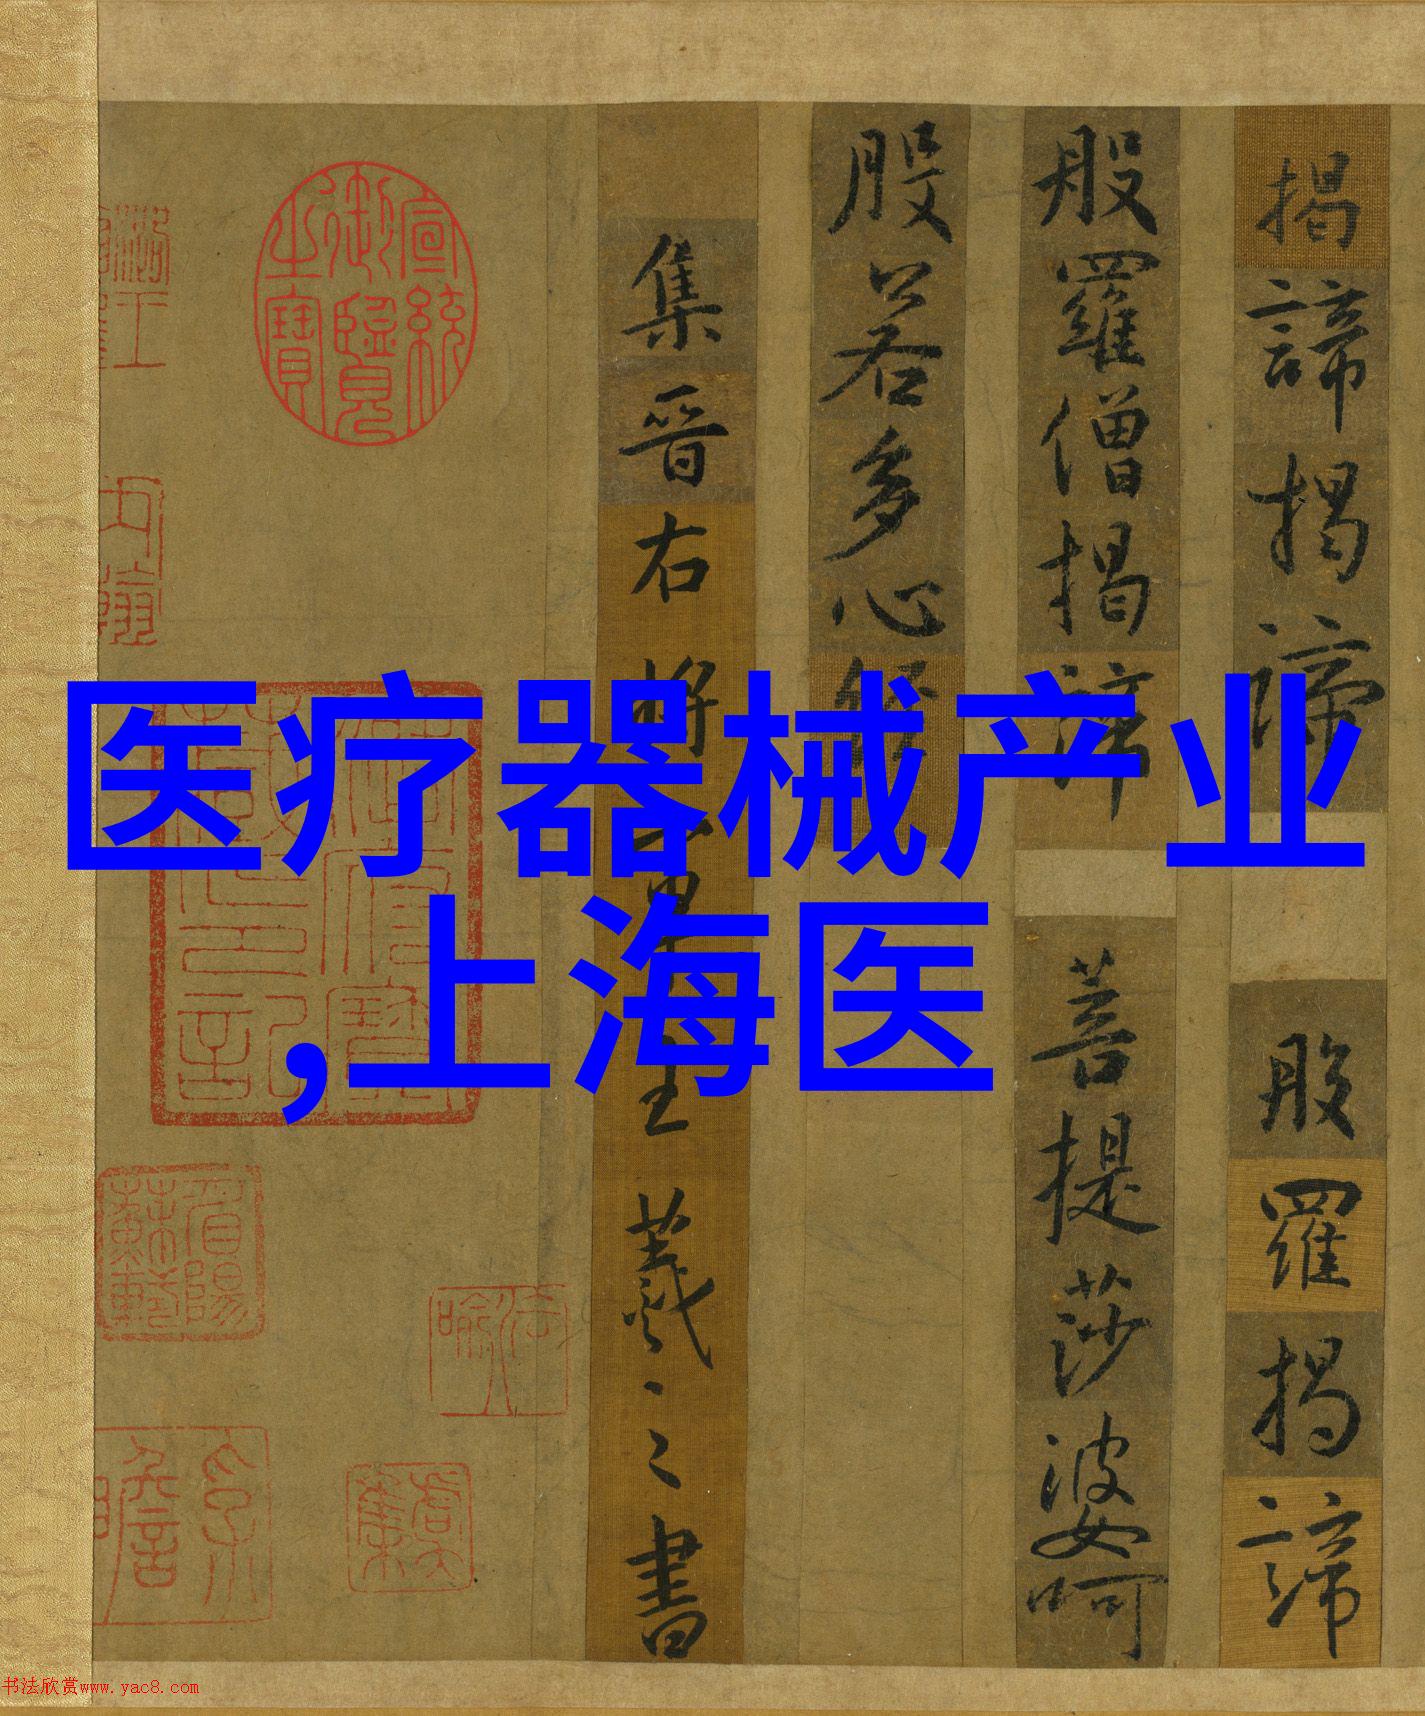 医疗器械产业
,上海医
揭諦揭諦
般羅揭諦
般羅僧揭諦
菩提莎婆呵
般若多心經
集晉右將軍王羲之書
宣統御覽之寶
书法欣赏www.yac8.com